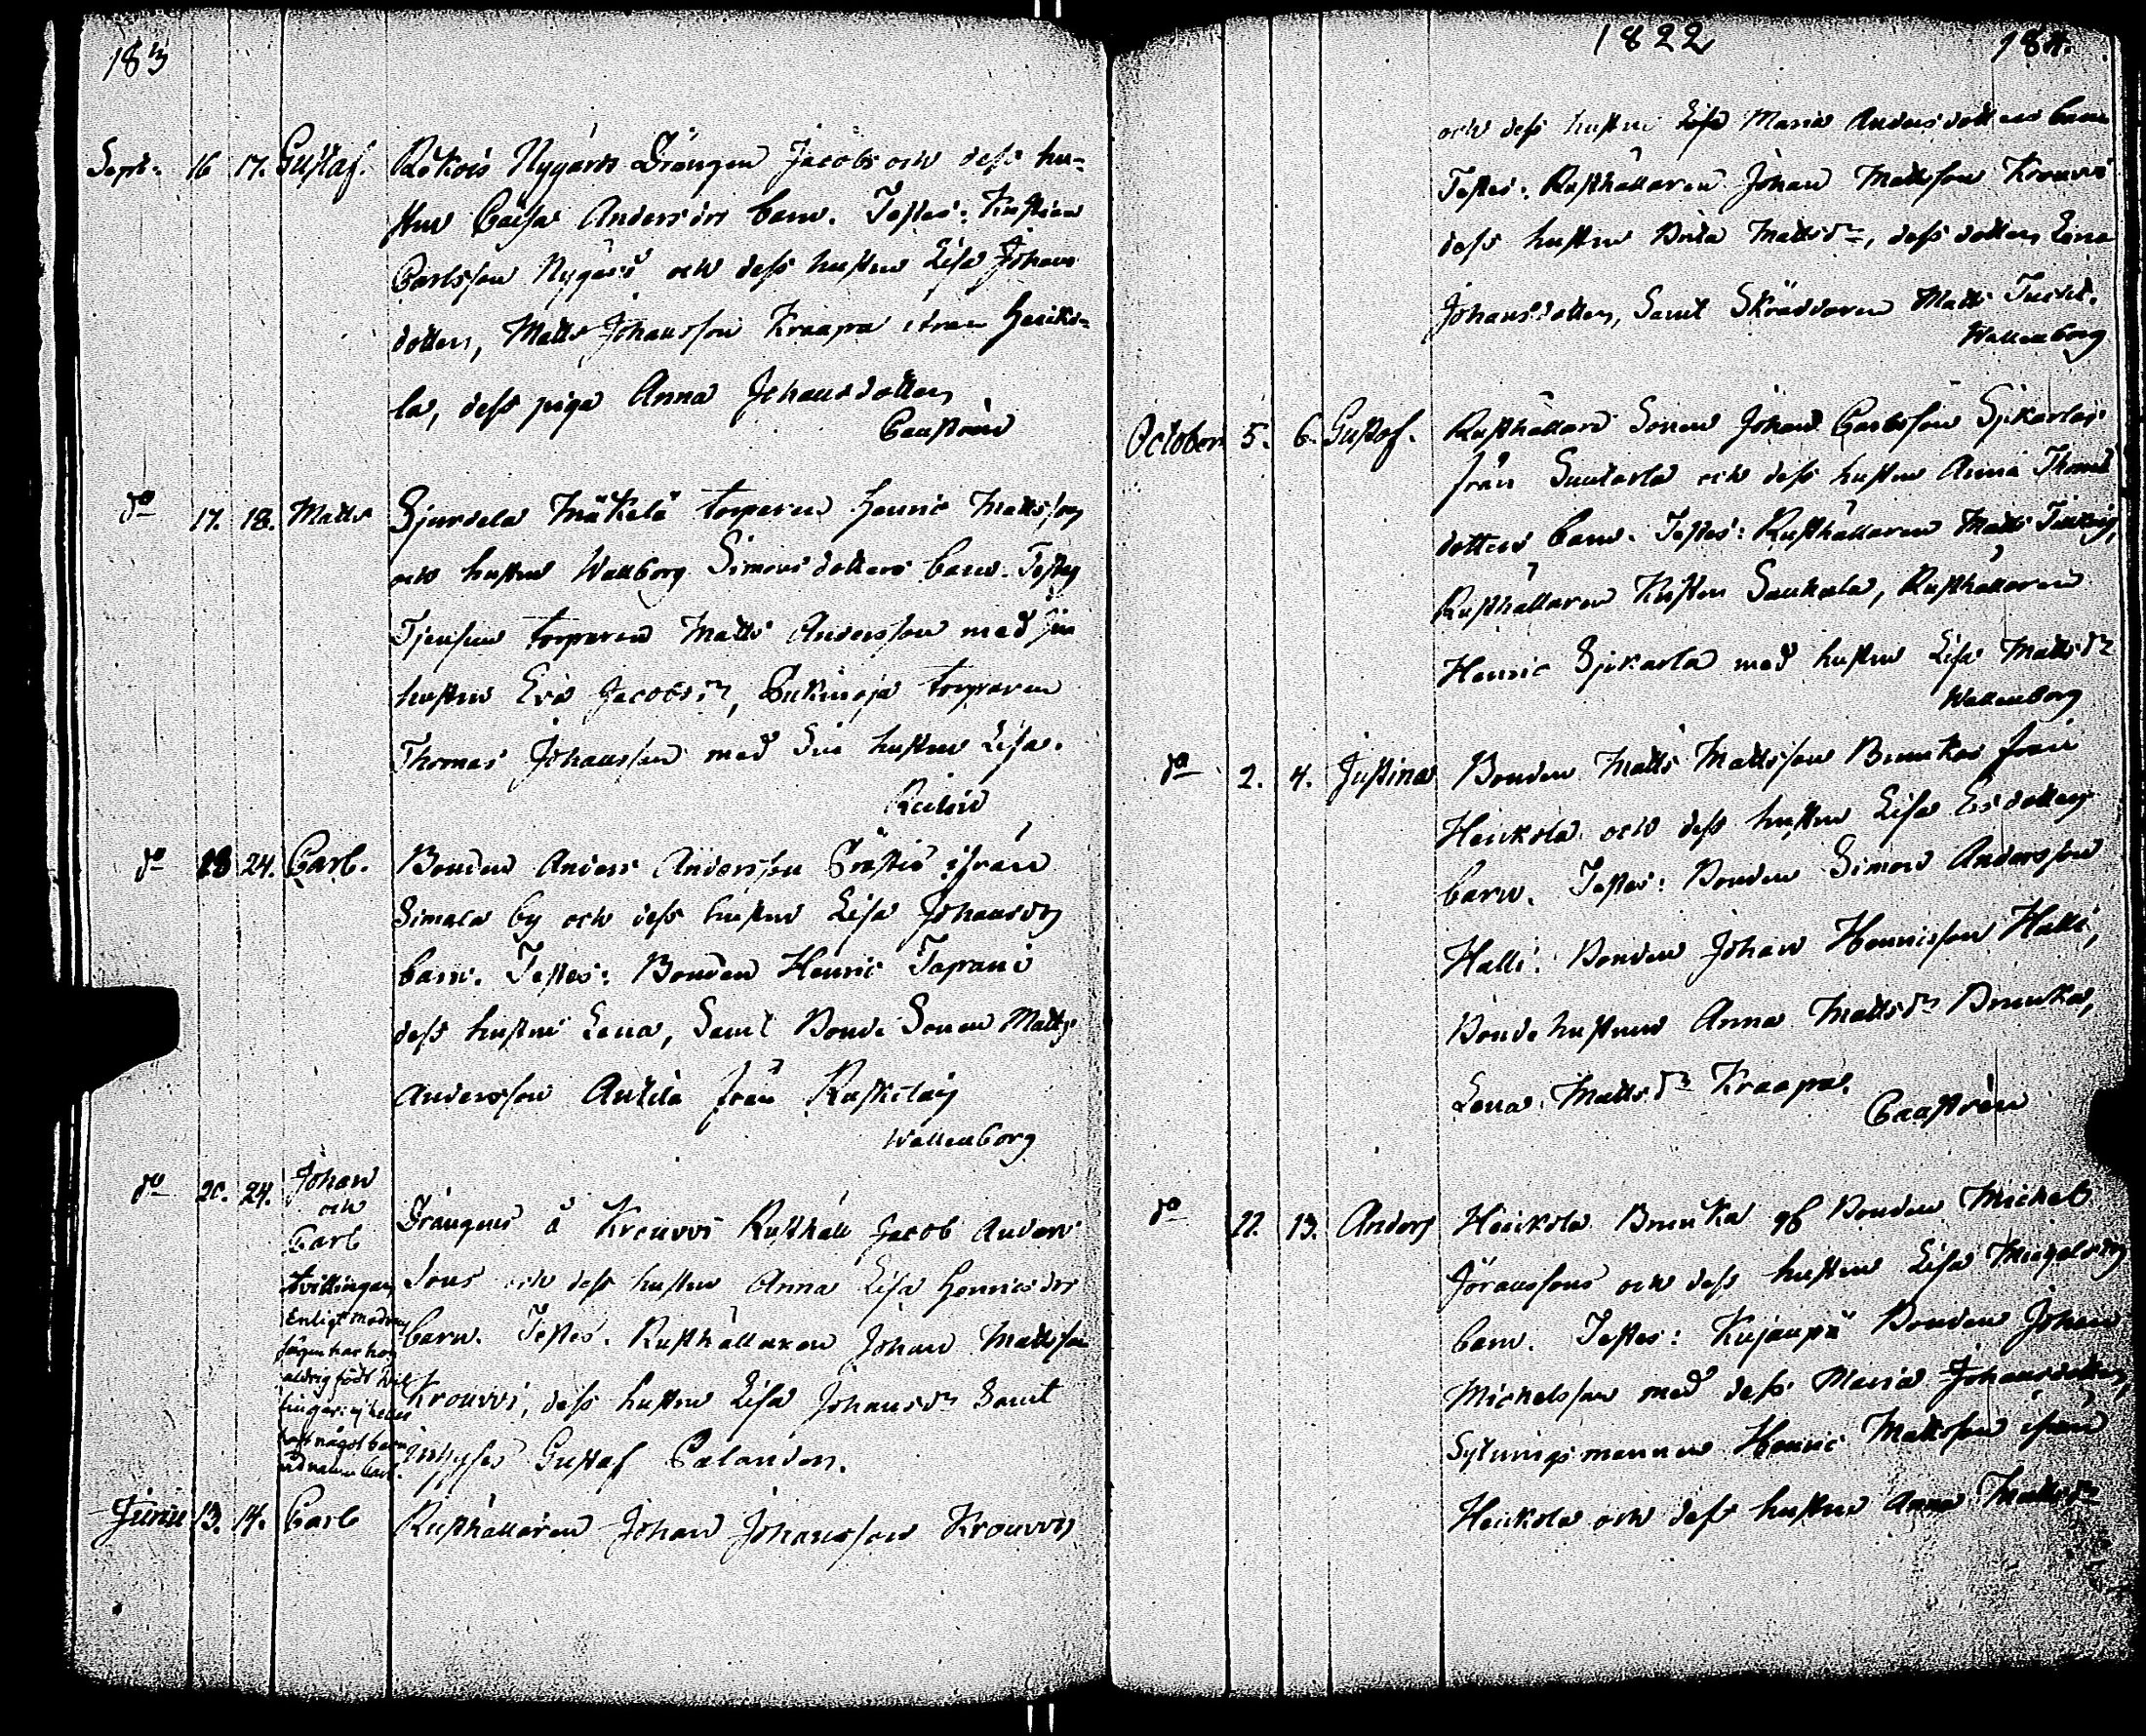 183
Sept. 16 17. Gustaf. Kokois Nygårds Drängen Jacobs och dess hu-
stru Caisa Andersdrs barn. Testes: Kustaa
Carlsson Nygård och dess hustru Lisa Johans
dotter, Matts Johansson Kraapa ifrån Heiko-
la, dess piga Anna Johansdotter
Caustrén
do 17. 18. Matts Sjundela Mäkelä torparen Henric Mattsson
och hustru Wallborg Simonsdotters barn. Testes
torparen Matts Andersson med sin
hustru Eva Jacobsdr, torparen
Thomas Johansson med sin hustru Lisa.
do 23 24. Carl. Bonden Anders Andersson Prästi ifrån
Simala by och dess hustru Lisa Johansdrs
barn. Testes: Bonden Henric Tapani
dess hustru Lena, Samt Bonde Sonen Matts
Andersson Antila från
Wallenborg
do 20. 24. Johan
och
Carl
tvillingar
Enligt modrens
sägen har hon
aldrig födt twil
lingar: ej heller
haft något barn
vid namn Carl.
Drängens å Krouvi Rusthåll Jacob Anders
Sons och dess hustru Anna Lisa Henricsdrs
barn. Testes. Rusthållaren Johan Mattsson
Krouvi, dess hustru Lisa Johansdr Samt
Inhyses Gustaf Calander.
Junii 13. 14. Carl Rusthållaren Johan Johansson Krouvis
1822 184.
och dess hustru Maria Andersdotters barn
Testes. Rusthållaren Johan Mattsson Krouvi
dess hustru Brita Mattsdr, dess dotter Lena
Johansdotter, Samt Skräddaren Matts
Wallenborg
October 5. 6. Gustaf. Rusthållare Sonen Johan Carlsson Sjikarlas
från Suutarla och dess hustru Anna Thomas
dotters barn. Testes: Rusthållaren Matts
Rusthållaren Saukala, Rusthållaren
Henric Sjikarla med hustru Lisa Mattsdr
Wallenborg
do 2. 4. Justina Bonden Matts Mattsson Brunkas från
Heickola och dess hustru Lisa Ersdotters
barn. Testes: Bonden Simon Andersson
Halli. Bonden Johan Henricsson Halli,
Bonde hustrun Anna Mattsdr Brunka,
Lena Mattsdr Kraapa.
Caustrén
do 12. 13. Anders Heickola Brunka Bonden Michel
Jöranssons och dess hustru Lisa Michelsdrs
barn. Testes: Kujanpä Bonden Johan
Michelsson med dess Maria Johansdotter,
Sytningsmannen Henric Mattsson ifrån
Heickola och dess hustru Anna Mattsdr